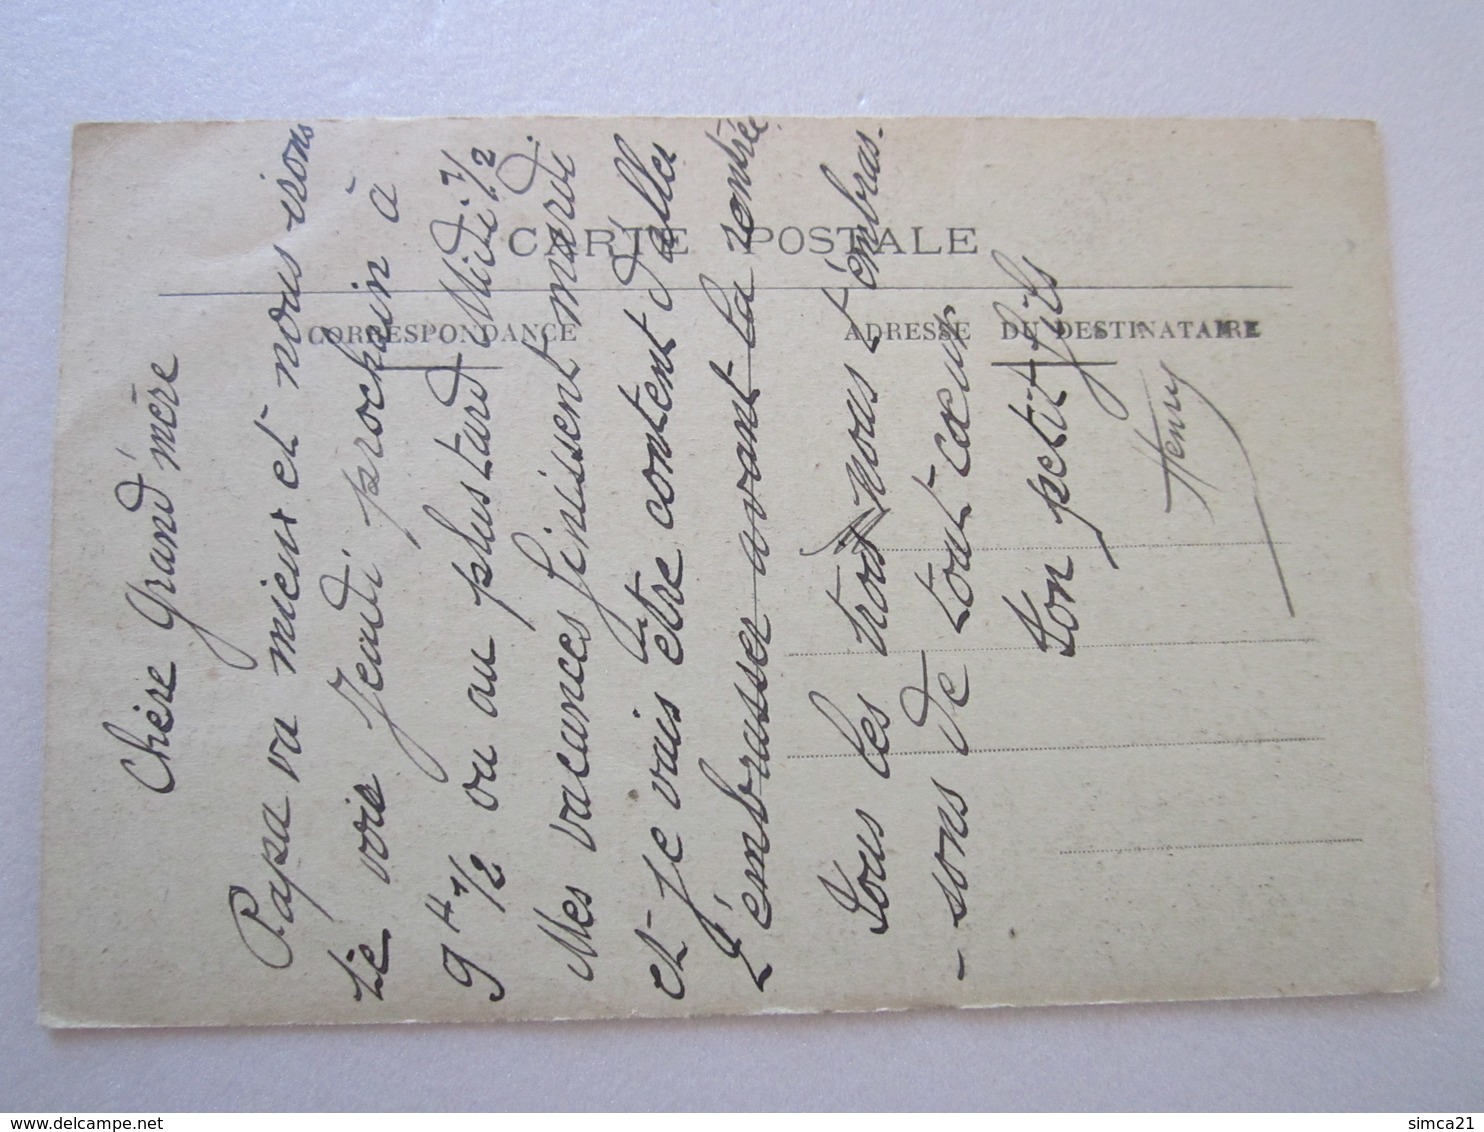 CARTE POSTALE
CORRESPONDANCE
ADRESSE DU DESTINATAIRE
Chère Grand'mère
Papa va mieux et nous irons
te voir Jeudi prochain à
9H 1/2 ou au plus tard Midi 1/2
Mes vacances finissent mardi
et je vais être content d'aller
t'embrasser avant la rentrée
Tous les trois nous t'embras-
-sons de tout cœur
Ton petit fils
Henry
www.delcampe.net
simca21